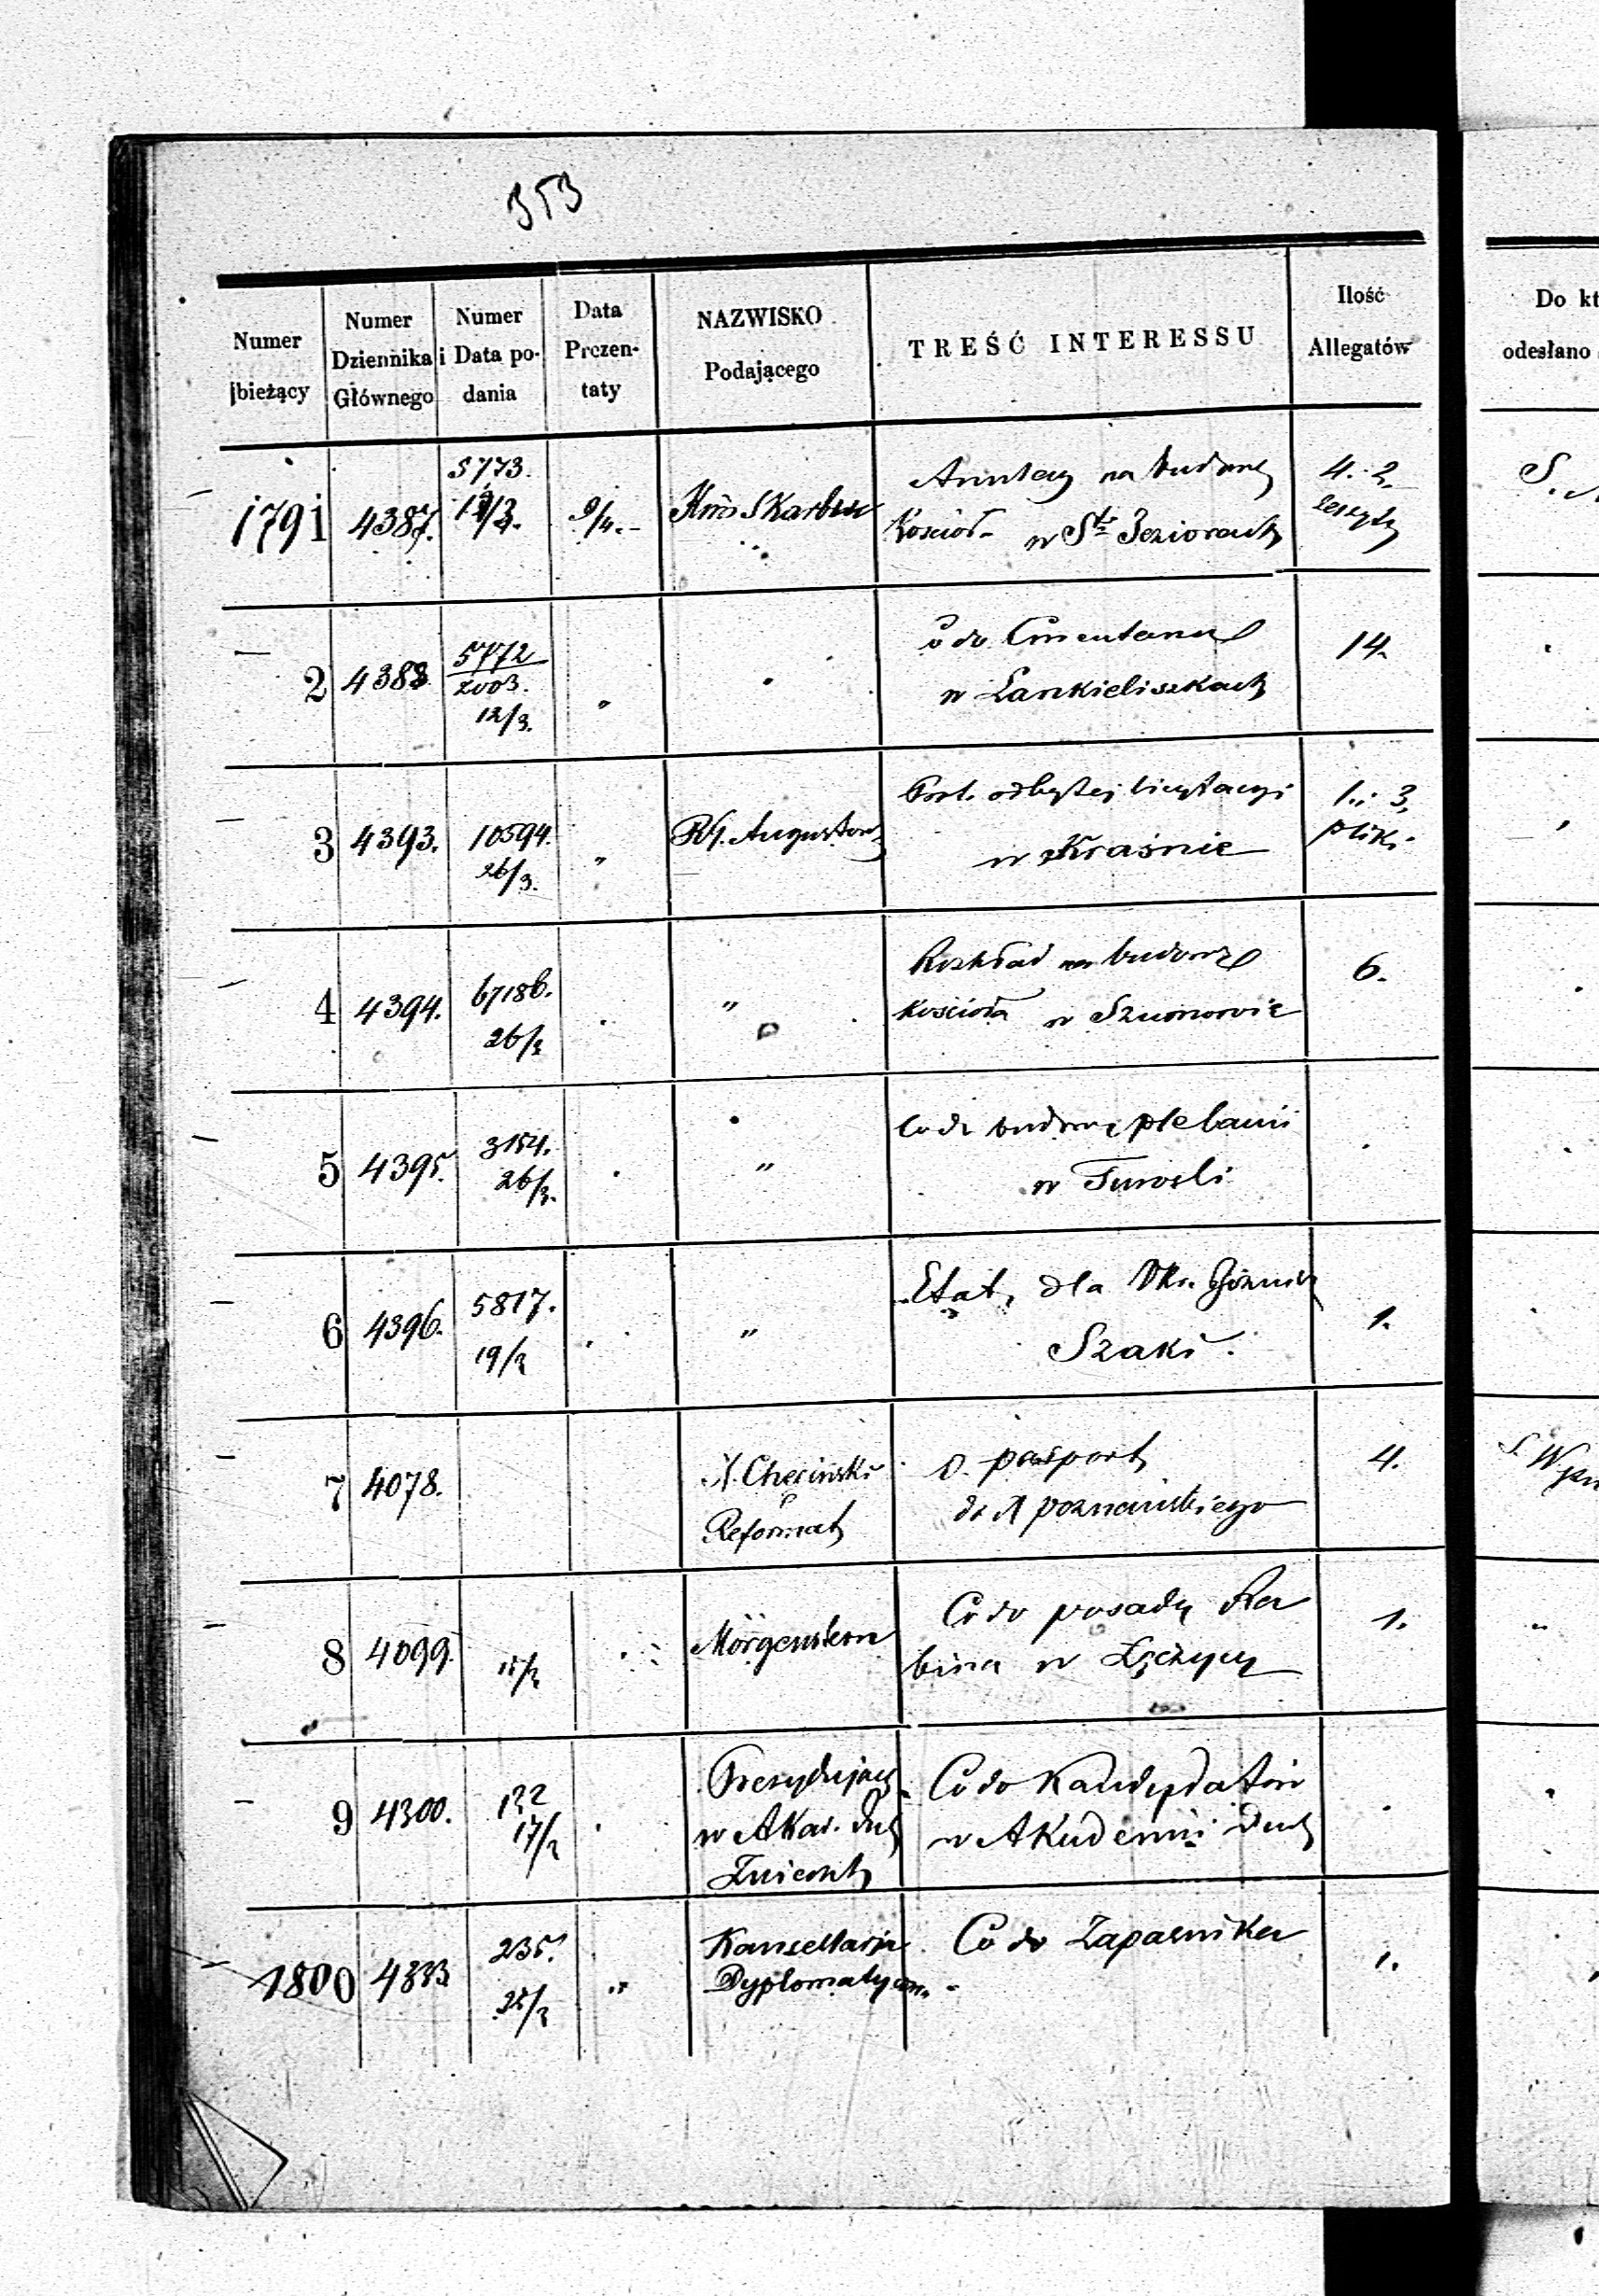 353
Numer bieżący
Numer Dziennika Głównego
Numer i Data podania
Data Prezentaty
NAZWISKO Podającego
TREŚĆ INTERESSU
Ilość Allegatów
Do kt
odesłano
1791 4387. 5773. 9/4. na budowę 4. 2.
Kościoł w St. Jeziorach zeszyty
S.
2 4388 5772 Co do Cmentarza 14.
2003. w Lankieliszkach
12/3.
3 4393. 10594. R.G. Augustow odbytej licytacyi 1. 3.
26/3. w Kraśnie plik.
4 4394. 6718b. " Rozkład na budowę 6.
26/3 Kościoła w Szumowie
5 4395. 3154. " Co do budowy plebanii
26/3. w Turośli
6 4396. 5817. " Etat dla Okr. Bóżnicz 1.
19/3 Szaki.
7 4078. X. Chęciński o pasport 4.
Reformat do X poznańskiego
S. W
8 4099. 15/3 Morgenstern Co do posady Ra 1.
bina w Łęczycy
9 4300. 132 Prezydujący Co do Kandydatów
17/3 w Akad. Duch w Akademii Duch
1800 4333 235. " Kancellarja Co do Zapaśnika 1.
25/3 Dyplomatyczn.